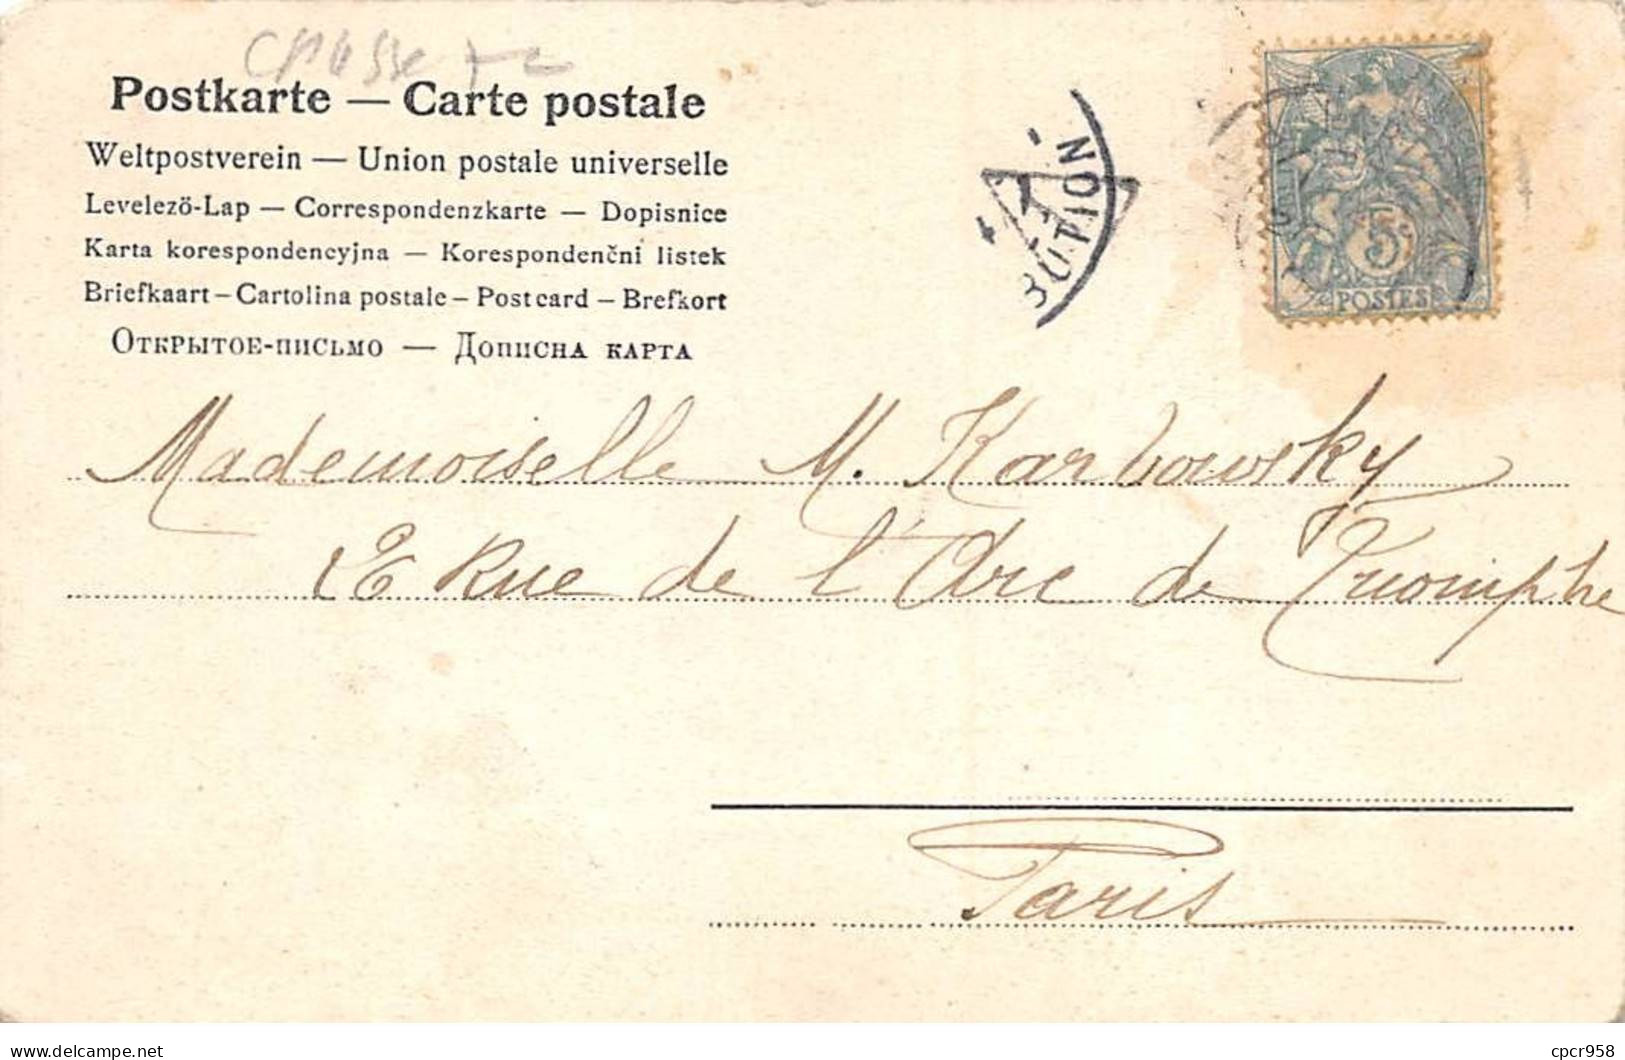 Postkarte — Carte postale
Weltpostverein — Union postale universelle
Levelező-Lap — Correspondenzkarte — Dopisnice
Karta korespondencyjna — Korespondenční listek
Briefkaart – Cartolina postale – Post card – Brefkort
Открытое-письмо — Дописна карта
BUTION
5c
POSTES
Mademoiselle M. Karbowsky
Rue de l'Arc de Triomphe
Paris
delcampe.net
cpcr958